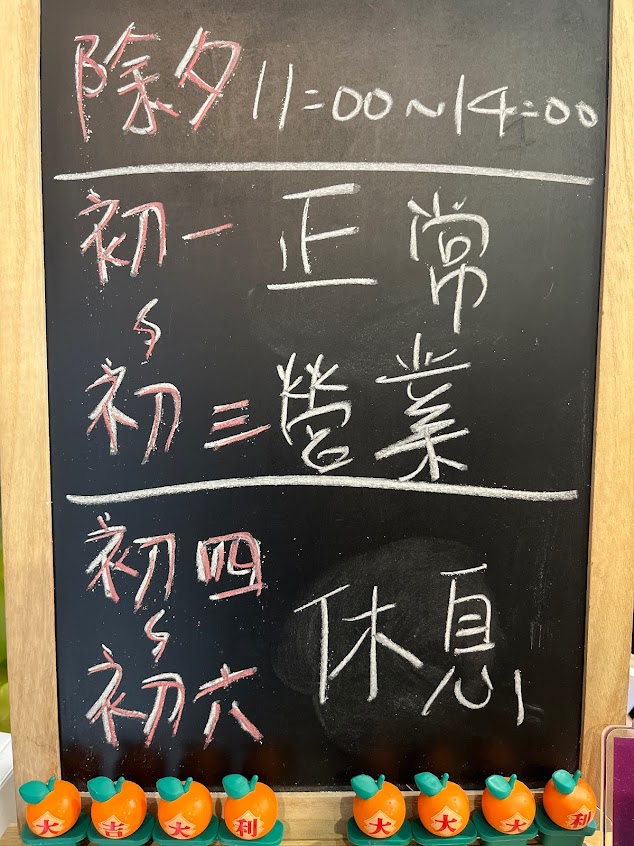 除夕 11:00~14:00
初一 正常
~
初三 營業
初四
~ 休息
初六
大 吉 大 利 大 大 大 利